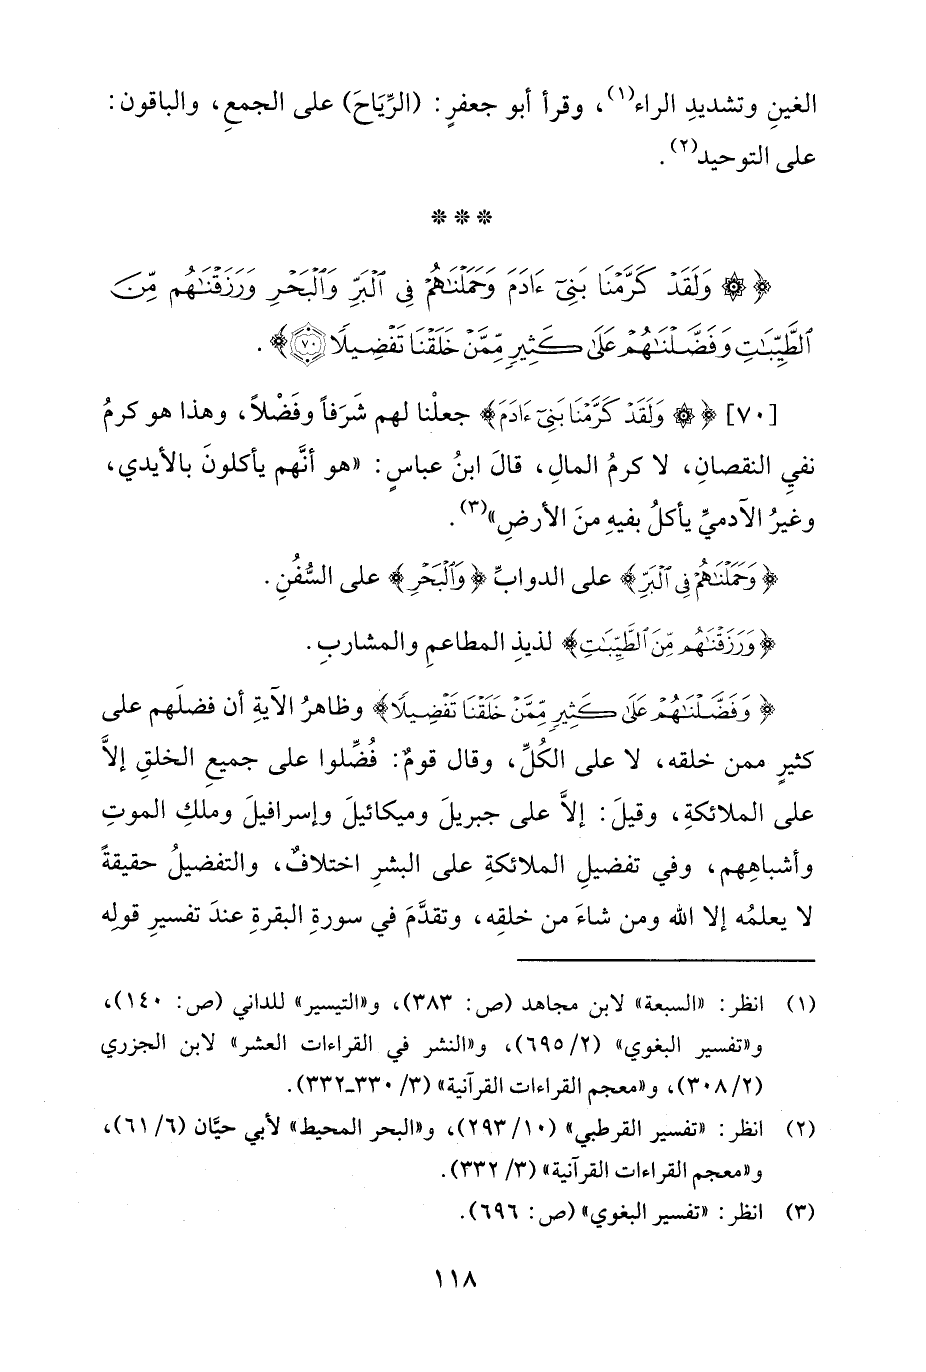 الغينِ وتشديدِ الراء(١)، وقرأ أبو جعفرٍ: (الرِّيَاحَ) على الجمعِ، والباقون:
على التوحيد(٢).
* * *
﴿۞ وَلَقَدْ كَرَّمْنَا بَنِىٓ ءَادَمَ وَحَمَلْنَٰهُمْ فِى ٱلْبَرِّ وَٱلْبَحْرِ وَرَزَقْنَٰهُم مِّنَ
ٱلطَّيِّبَٰتِ وَفَضَّلْنَٰهُمْ عَلَىٰ كَثِيرٍ مِّمَّنْ خَلَقْنَا تَفْضِيلًا ٧٠﴾.
[٧٠] ﴿۞ وَلَقَدْ كَرَّمْنَا بَنِىٓ ءَادَمَ﴾ جعلْنا لهم شَرَفاً وفَضْلاً، وهذا هو كرمُ
نفيِ النقصانِ، لا كرمُ المالِ، قالَ ابنُ عباسٍ: «هو أنَّهم يأكلونَ بالأيدي،
وغيرُ الآدميِّ يأكلُ بفيهِ منَ الأرضِ»(٣).
﴿وَحَمَلْنَٰهُمْ فِى ٱلْبَرِّ﴾ على الدوابِّ ﴿وَٱلْبَحْرِ﴾ على السُّفُنِ.
﴿وَرَزَقْنَٰهُم مِّنَ ٱلطَّيِّبَٰتِ﴾ لذيذِ المطاعمِ والمشاربِ.
﴿وَفَضَّلْنَٰهُمْ عَلَىٰ كَثِيرٍ مِّمَّنْ خَلَقْنَا تَفْضِيلًا﴾ وظاهرُ الآيةِ أن فضلَهم على
كثيرٍ ممن خلقه، لا على الكُلِّ، وقال قومٌ: فُضِّلوا على جميعِ الخلقِ إلاَّ
على الملائكةِ، وقيلَ: إلاَّ على جبريلَ وميكائيلَ وإسرافيلَ وملكِ الموتِ
وأشباهِهم، وفي تفضيلِ الملائكةِ على البشرِ اختلافٌ، والتفضيلُ حقيقةً
لا يعلمُه إلا الله ومن شاءَ من خلقِه، وتقدَّمَ في سورةِ البقرةِ عندَ تفسيرِ قولِه
(١) انظر: «السبعة» لابن مجاهد (ص: ٣٨٣)، و«التيسير» للداني (ص: ١٤٠)،
و«تفسير البغوي» (٢/ ٦٩٥)، و«النشر في القراءات العشر» لابن الجزري
(٢/ ٣٠٨)، و«معجم القراءات القرآنية» (٣/ ٣٣٠ـ٣٣٢).
(٢) انظر: «تفسير القرطبي» (١٠/ ٢٩٣)، و«البحر المحيط» لأبي حيَّان (٦/ ٦١)،
و«معجم القراءات القرآنية» (٣/ ٣٣٢).
(٣) انظر: «تفسير البغوي» (ص: ٦٩٦).
١١٨